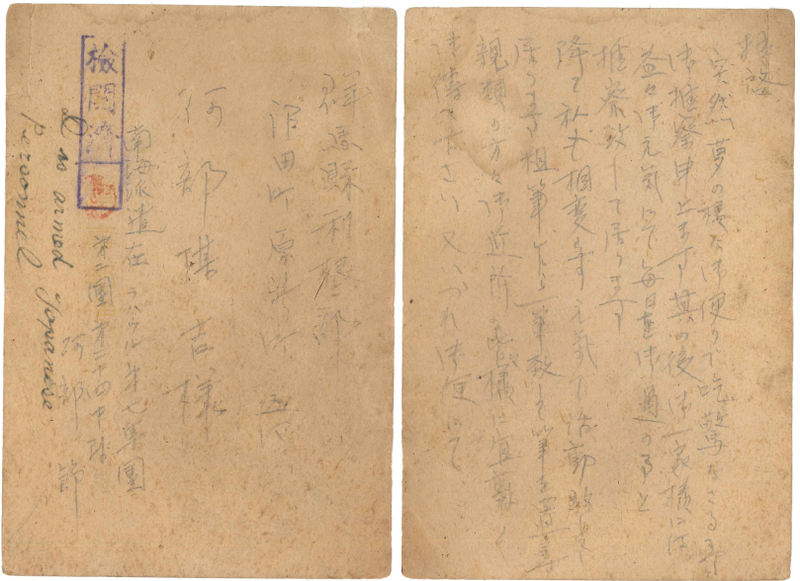 檢閲濟
群馬縣利根郡
沼田町原町
阿部 吉様
南海派遣在ラバウル第七集團
第二團第二十四中隊
阿部
Dis armed Japanese
Personnel
拝啓
突然夢の様な御便りで吃驚なさる事
御推察申上ます其の後御一家様には
益々御元気にて毎日を御過のる事と
推察致して居ります
降て私も相変らず元気で活動致して
居ります 乍ら 筆
親類の方々御近所の皆様に宜敷く
御傳へ下さい又いづれ御便にて